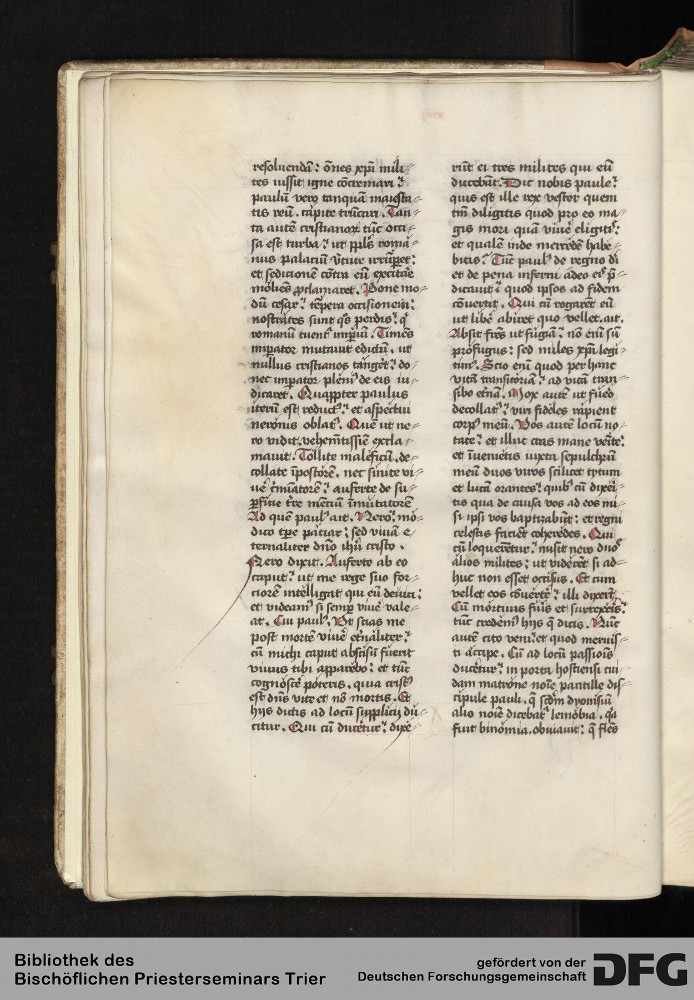 resoluendā: oēs xpī mili-
tes iussit igne cōcremari:
paulū vero tanquā maiesta-
tis reū. capite trūcari. Tan-
ta autē cristianoꝝ tūc occi-
sa est turba: ut ppls roma-
nus palaciū v̄tute irrūpet:
et sedicionē cōtra eū excitare
moliēs ꝓclamaret. Pone mo-
dū cesar: tēpera occisionem:
nostrates sunt qs perdis: q
romanū tuent impiū. Timēs
imꝑator mutauit edictū. ut
nullus cristianos tangēt: do-
nec imꝑator pleni de eis iu-
dicaret. Quaꝓpter paulus
iterū est reduct: et aspectui
neronis oblat. Quē ut ne-
ro vidit. vehemētissie excla-
mauit. Tollite maleficū. de-
collate īpostorē. nec sinite vi-
ue c̄minatorē: auferte de su-
ꝑficie tre mētiū īmutatorē
Ad quē paul ait. Nero: mo-
dico tꝑe paciar: sed viuā e-
ternaliter dn̄o ihū cristo.
Nero dixit. Auferte ab eo
caput: ut me rege suo for-
ciorē intelligat qui eū deuici:
et videam si semꝑ viue vale-
at. Cui paul. Ut scias me
post mortē viue etnaliter:
cū michi caput abscisū fuerit
viuus tibi apparebo: et tūc
cognoscē poteris. quia crist
est dn̄s vite et nō mortis. Et
hijs dictis ad locū supplicij du-
citur. Qui cū ducētur: dixe-
rūt ei tres milites qui eū
ducebāt. Dic nobis paule:
quis est ille rex vester quem
tm̄ diligitis quod pro eo ma-
gis mori quā viue eligitis:
et qualē inde mercedē habe-
bitis: Tūc paul de regno di
et de pena inferni adeo eis p̄-
dicauit: quod ipsos ad fidem
cōuertit. Qui cū rogarēt eū
ut liber abiret quo vellet. ait.
Absit frēs ut fugiā: nō enī sū
profugus: sed miles xpī legi-
tim. Scio enī quod per hanc
vitā transitoriā: ad vitā tran-
sibo etnā. Mox autē ut fuero
decollat: viri fideles rapient
corp meū. Vos autē locū no-
tate: et illuc cras mane veite:
et īuenietis iuxta sepulchrū
meū duos viros scilicet tytum
et lucā orantes: quib cū dixeri-
tis qua de causa vos ad eos mi-
si: ipsi vos baptizabūt: et regni
celestis facient coheredes. Qui
cū loquerētur: misit nero duos
alios milites: ut viderēt si ad-
huc non esset occisus. Et cum
vellet eos cōuerte: illi dixert.
Cū mortuus fūis et surrexeris:
tūc credem hijs q̄ dicis. Nūc
autē cito veni: et quod meruis-
ti accipe. Cū ad locū passiois
ducētur: in porta hostiensi cui-
dam matrone noīe pantille dis-
cipule pauli. q̄ scdm dyonisiū
alio noīe dicebat lemobia. qa
fuit binomia. obuiauit: q̄ flēs
Bibliothek des
Bischöflichen Priesterseminars Trier
gefördert von der
Deutschen Forschungsgemeinschaft
DFG